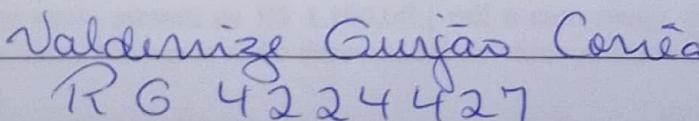 Valdenize Gurjão Corrêa
RG 4224427